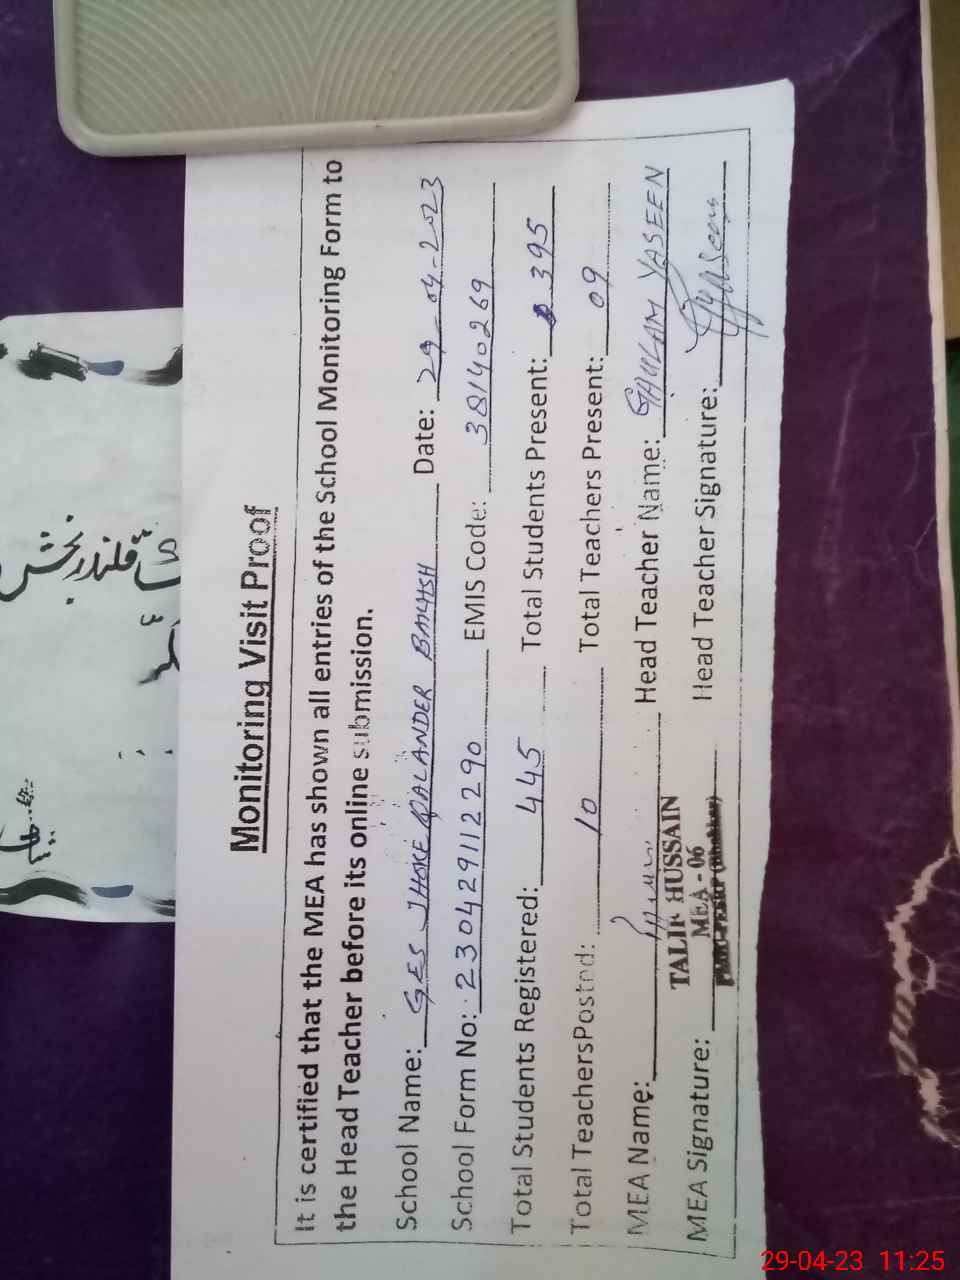 Monitoring Visit Proof
It is certified that the MEA has shown all entries of the School Monitoring Form to
the Head Teacher before its online submission.
School Name: GES JHOKE QALANDER BAKHSH Date: 29-04-2023
School Form No: 230429112290 EMIS Code: 38140269
Total Students Registered: 445 Total Students Present: 395
Total TeachersPosted: 10 Total Teachers Present: 09
MEA Name: Head Teacher Name: GHULAM YASEEN
TALIB HUSSAIN
MEA - 06
MEA Signature: Head Teacher Signature: Yaseen
قلندر بخش
29-04-23 11:25